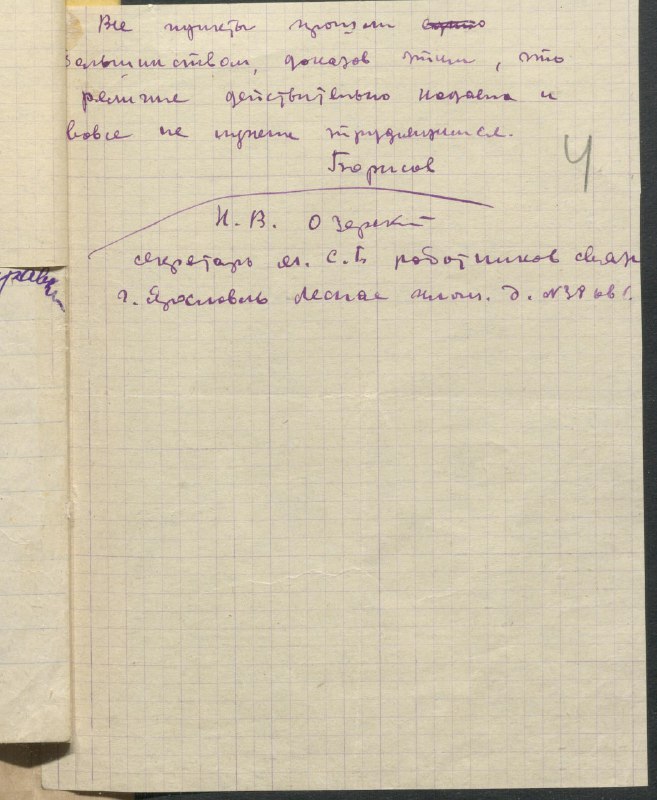 Все пункты прошли
большинством, доказов этим, что
религие действительно надаела и
вовсе не нужна трудящимся.
Борисов
4
Н. В. Озерский
секретарь м. С. Б работников связи
г. Ярославль Лесная площ. д. №38 кв 1.